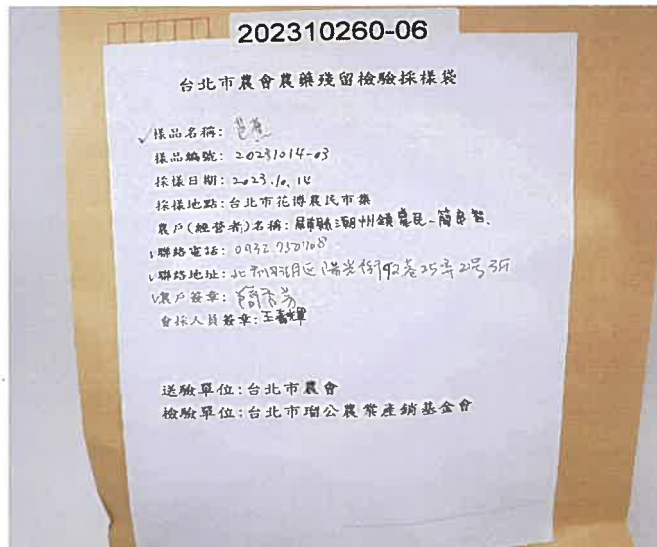 202310260-06
台北市農會農藥殘留檢驗採樣袋
✓樣品名稱:
樣品編號: 20231014-03
採樣日期: 2023.10.14
採樣地點:台北市花博農民市集
農戶(經營者)名稱: 屏東縣潮州鎮農民-簡良智.
✓聯絡電話: 0932
✓聯絡地址: 陽光街92巷25弄2号3F
✓農戶簽章:
會採人員簽章:
送驗單位:台北市農會
檢驗單位:台北市瑠公農業產銷基金會